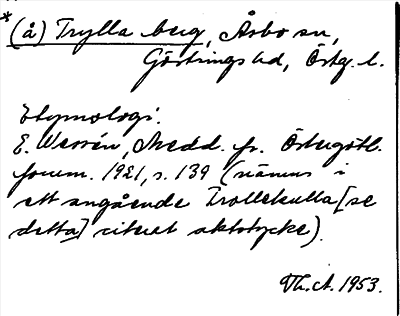 *(å) Trylla berg, Åsbo sn,
Göstrings hd, Östg. l.
Etymologi.
E. Wessén, Medd. fr. Östergötl.
forum. 1921, s. 139 (nämns i
ett angående Trollekulla [se
detta] citerat aktstycke).
Th. A. 1953.